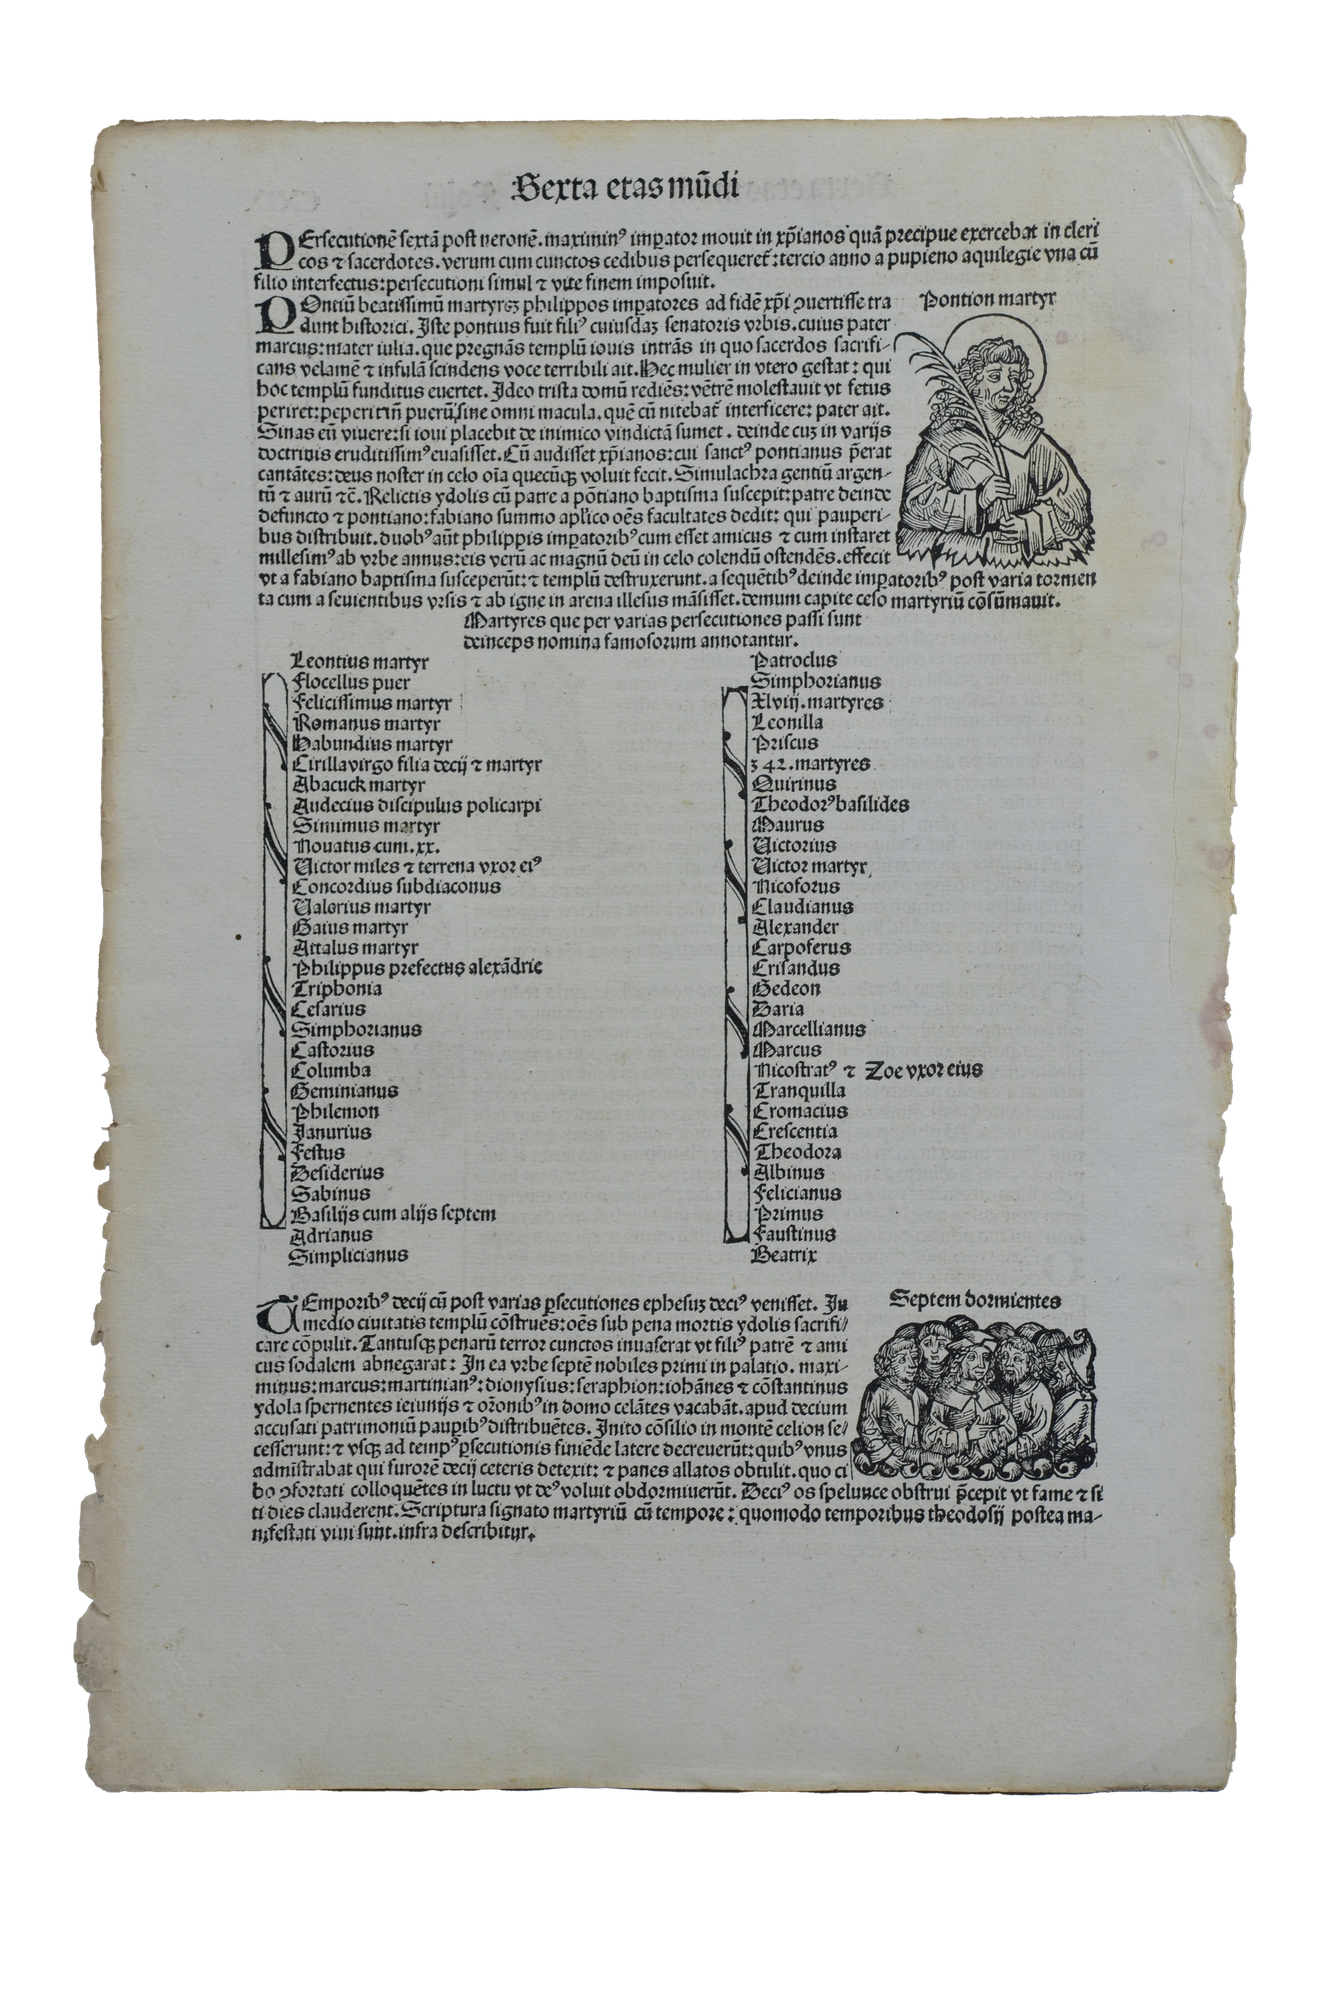 Sexta etas mũdi
PErsecutionẽ sextã post neronẽ. maximinꝰ imꝑator mouit in xp̃ianos quã precipue exercebat in cleri
cos ⁊ sacerdotes. verum cum cunctos cedibus persequeret᷑: tercio anno a pupieno aquilegie vna cũ
filio interfectus: persecutioni simul ⁊ vite finem imposuit.
POntiũ beatissimũ martyreꝫ philippos imꝑatores ad fidẽ xp̃i ꝯuertisse tra
dunt historici. Iste pontius fuit filiꝰ cuiusdaꝫ senatoris vrbis. cuius pater
marcus: mater iulia. que pregnãs templũ iouis intrãs in quo sacerdos sacrifi-
cans velamẽ ⁊ infulã scindens voce terribili ait. Hec mulier in vtero gestat: qui
hoc templũ funditus euertet. Ideo trista domũ rediẽs: vẽtrẽ molestauit vt fetus
periret: peperit tñ puerũ sine omni macula. quẽ cũ nitebat᷑ interficere: pater ait.
Sinas eũ viuere: si ioui placebit de inimico vindictã sumet. deinde cuꝫ in varijs
doctrinis eruditissimꝰ euasisset. Cũ audisset xp̃ianos: cui sanctꝰ pontianus p̃erat
cantãtes: deus noster in celo oĩa quecũqꝫ voluit fecit. Simulachra gentiũ argen-
tũ ⁊ aurũ ⁊c̃. Relictis ydolis cũ patre a põtiano baptisma suscepit: patre deinde
defuncto ⁊ pontiano: fabiano summo apl̃ico oẽs facultates dedit: qui pauperi-
bus distribuit. duobꝰ aũt philippis imꝑatoribꝰ cum esset amicus ⁊ cum instaret
millesimꝰ ab vrbe annus: eis verũ ac magnũ deũ in celo colendũ ostendẽs. effecit
vt a fabiano baptisma susceperũt: ⁊ templũ destruxerunt. a sequẽtibꝰ deinde imꝑatoribꝰ post varia tormen
ta cum a seuientibus vrsis ⁊ ab igne in arena illesus mãsisset. demum capite ceso martyriũ cõsũmauit.
Pontion martyr
Martyres que per varias persecutiones passi sunt
deinceps nomina famosorum annotantur.
Leontius martyr
Flocellus puer
Felicissimus martyr
Romanus martyr
Habundius martyr
Cirilla virgo filia decij ⁊ martyr
Abacuck martyr
Audecius discipulus policarpi
Sinimus martyr
Nouatus cum .xx.
Uictor miles ⁊ terrena vxor eiꝰ
Concordius subdiaconus
Ualerius martyr
Gaius martyr
Attalus martyr
Philippus prefectus alexãdrie
Triphonia
Cesarius
Simphorianus
Castorius
Columba
Geminianus
Philemon
Ianurius
Festus
Desiderius
Sabinus
Basilijs cum alijs septem
Adrianus
Simplicianus
Patroclus
Simphorianus
Xlviij. martyres
Leonilla
Priscus
342. martyres
Quirinus
Theodorꝰ basilides
Maurus
Uictorius
Uictor martyr
Nicoforus
Claudianus
Alexander
Carpoferus
Crisandus
Gedeon
Daria
Marcellianus
Marcus
Nicostratꝰ ⁊ Zoe vxor eius
Tranquilla
Cromacius
Crescentia
Theodora
Albinus
Felicianus
Primus
Faustinus
Beatrix
TEmporibꝰ decij cũ post varias ꝑsecutiones ephesuꝫ deciꝰ venisset. In
medio ciuitatis templũ cõstruẽs: oẽs sub pena mortis ydolis sacrifi/
care cõpulit. Tantusqꝫ penarũ terror cunctos inuaserat vt filiꝰ patrẽ ⁊ ami
cus sodalem abnegarat: In ea vrbe septẽ nobiles primi in palatio. maxi-
minus: marcus: martinianꝰ: dionysius: seraphion: iohãnes ⁊ cõstantinus
ydola spernentes ieiunijs ⁊ or̃onibꝰ in domo celãtes vacabãt. apud decium
accusati patrimoniũ pauꝑibꝰ distribuẽtes. Inito cõsilio in montẽ celion se/
cesserunt: ⁊ vsqꝫ ad tempꝰ ꝑsecutionis finiẽde latere decreuerũt: quibꝰ vnus
admĩstrabat qui furorẽ decij ceteris detexit: ⁊ panes allatos obtulit. quo ci
bo ꝯfortati colloquẽtes in luctu vt deꝰ voluit obdormiuerũt. Deciꝰ os spelunce obstrui p̃cepit vt fame ⁊ si
ti dies clauderent. Scriptura signato martyriũ cũ tempore: quomodo temporibus theodosij postea ma-
nifestati viui sunt. infra describitur.
Septem dormientes